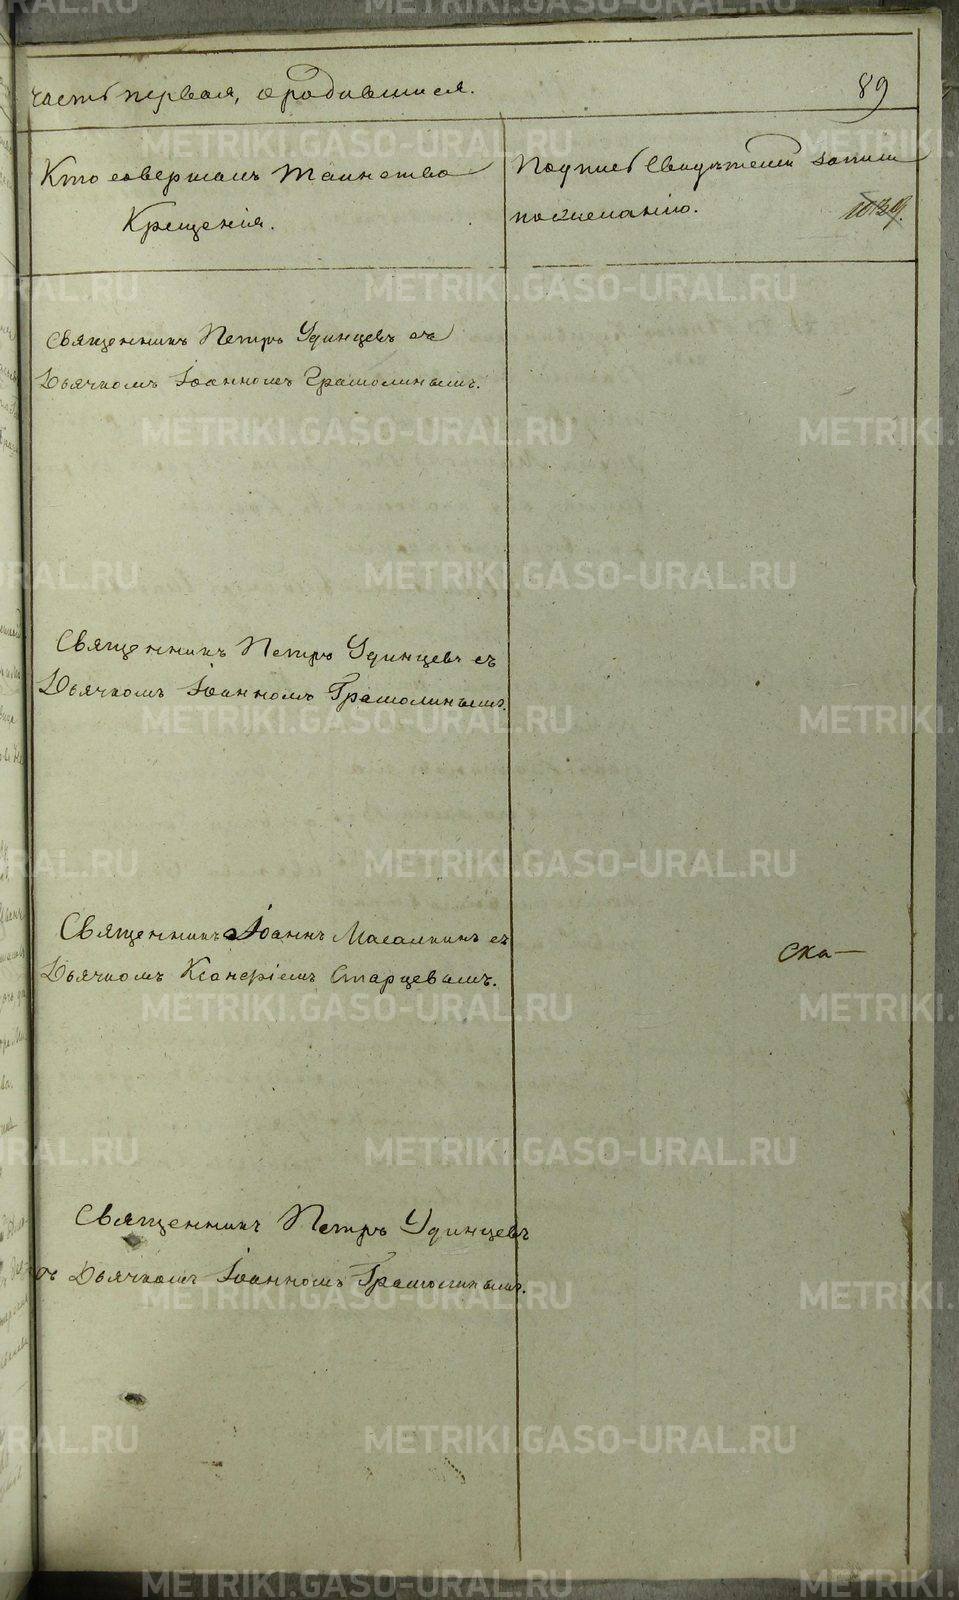 часть первая, о родившихся.
89
Кто совершалъ таинство
Крещенія.
Подпись свидѣтелей записи
по желанію.
Священникъ Петръ Удинцевъ съ
Дьячкомъ Іоанномъ Грамолинымъ.
Священникъ Петръ Удинцевъ съ
Дьячкомъ Іоанномъ Грамолинымъ.
Священникъ Іоаннъ Масалкинъ съ
Дьячкомъ Старцевымъ.
ска—
Священникъ Петръ Удинцевъ
съ Дьячкомъ Іоанномъ Грамолинымъ.
METRIKI.GASO-URAL.RU